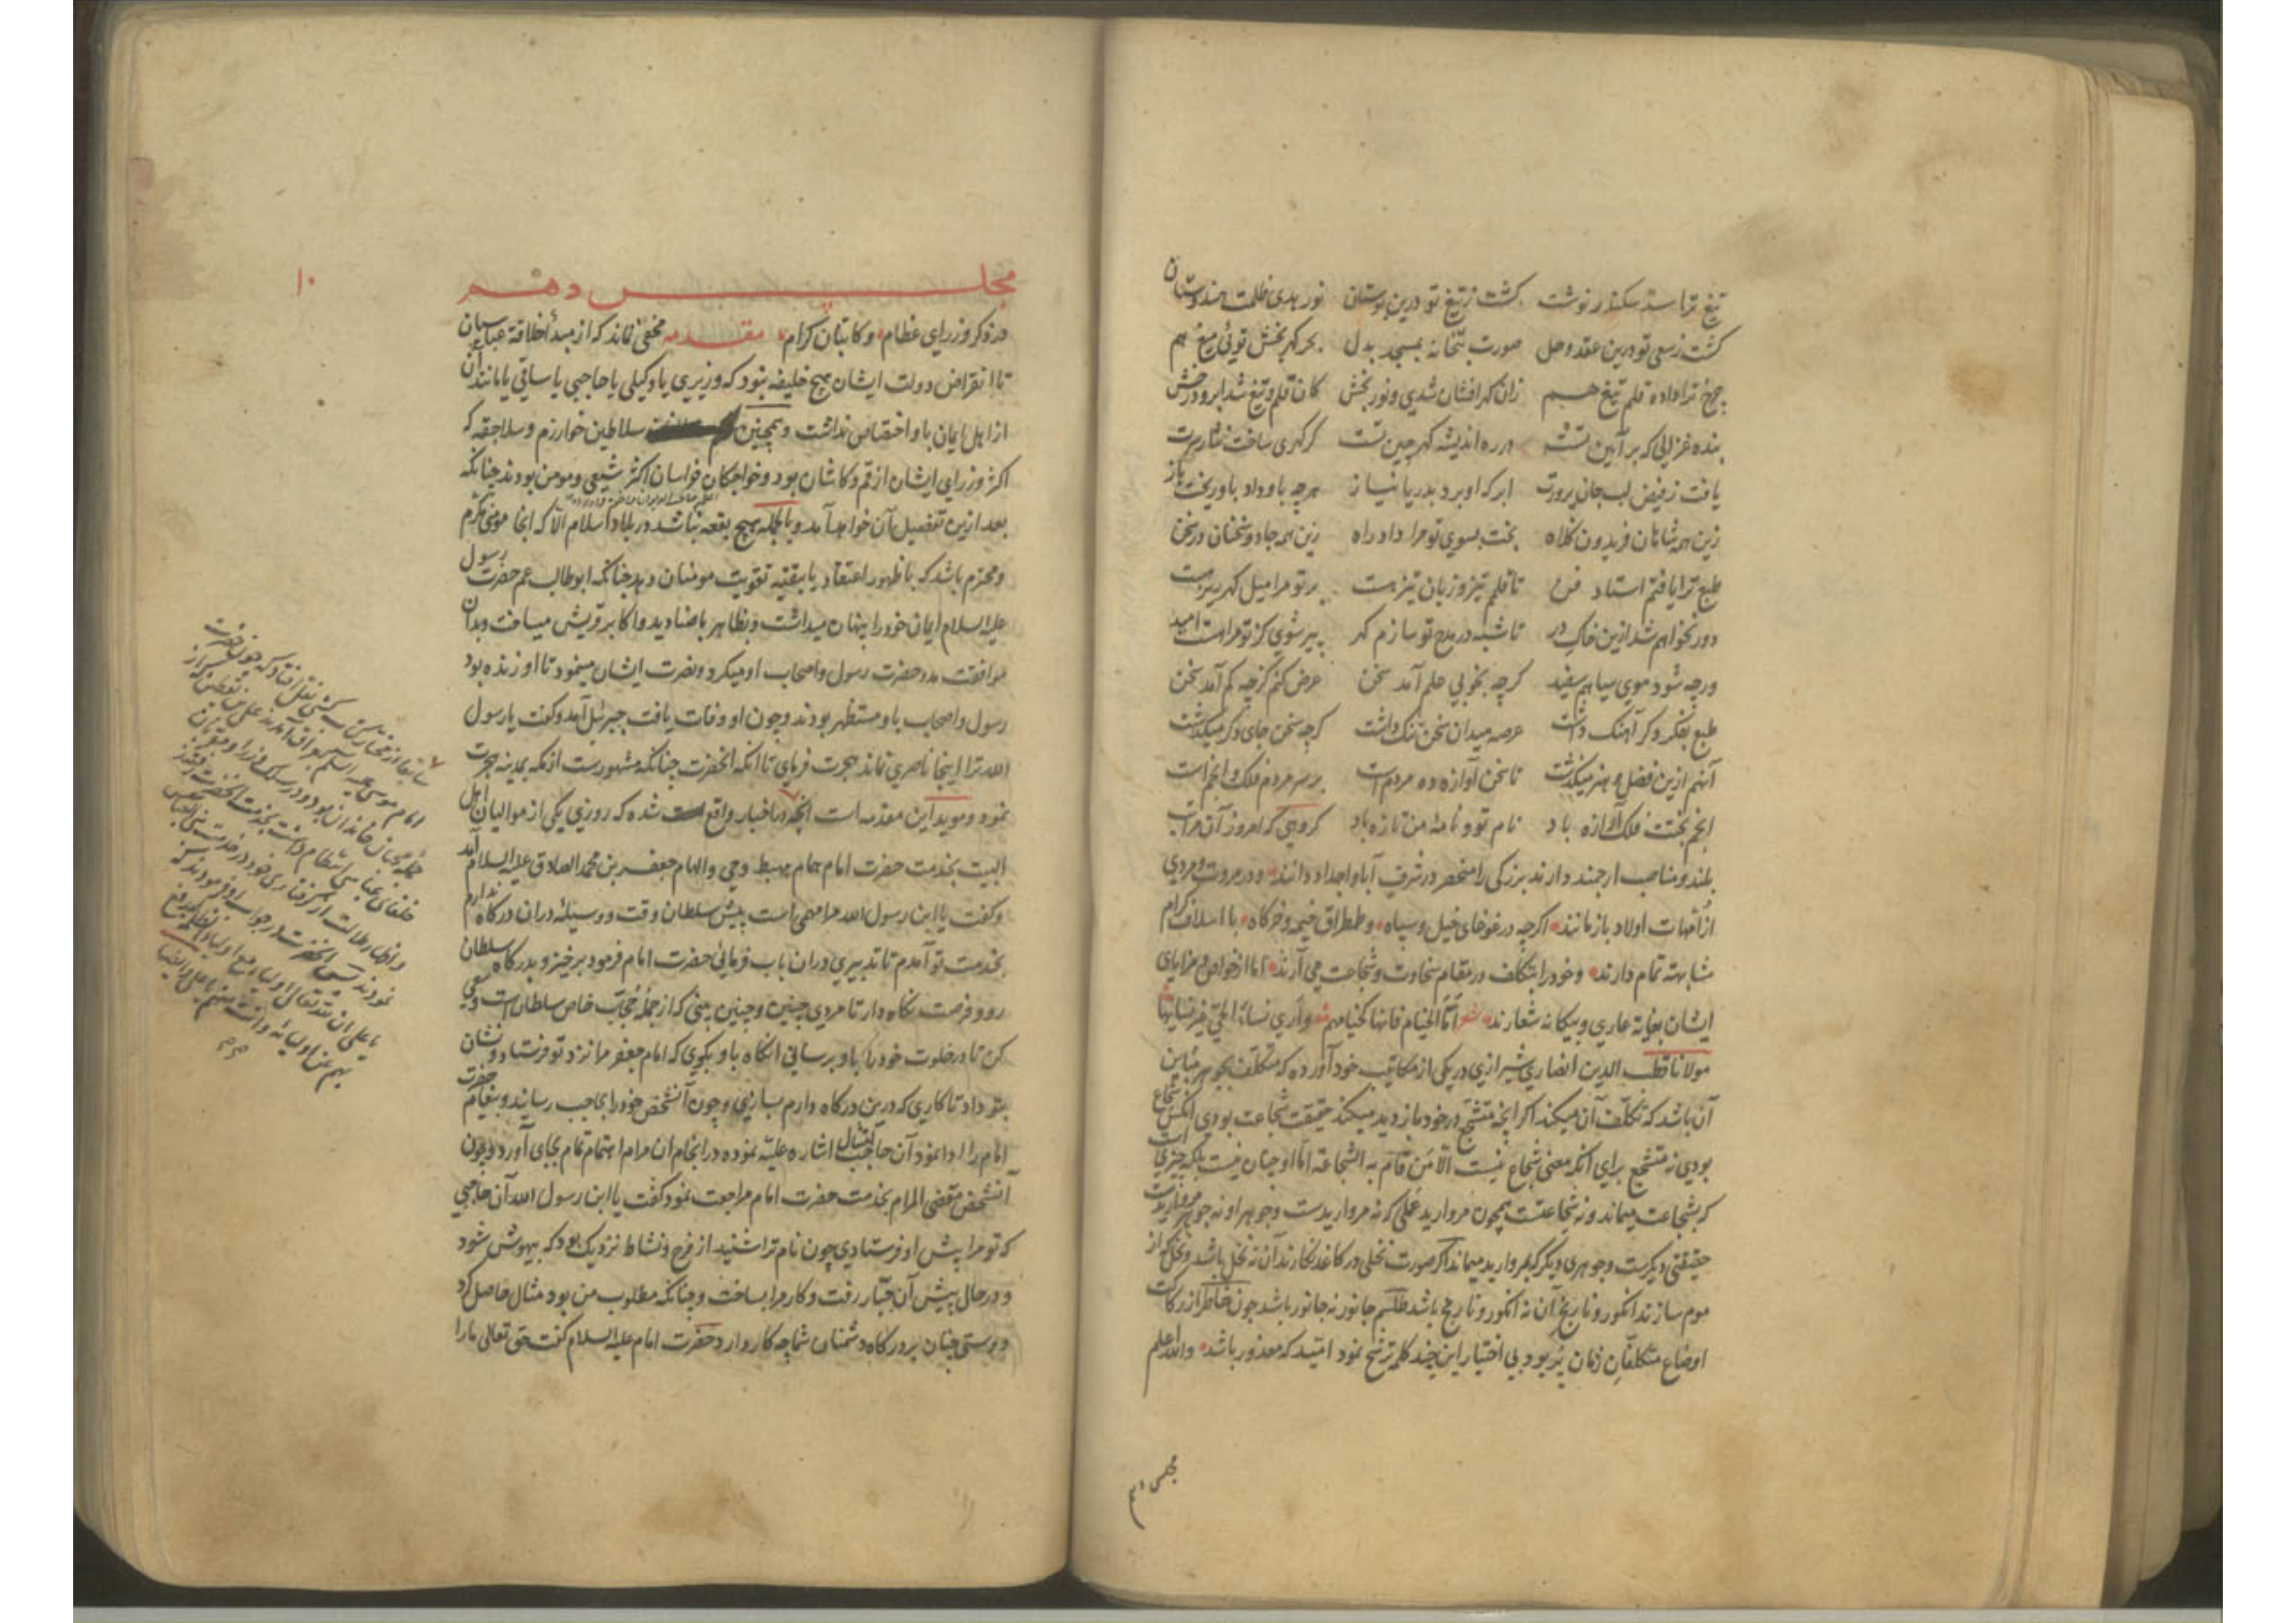 تیغ ترا سد سکندر نوشت کشت ز تیغ تو درین بوستان نور هدی ظلمت هندوستان
کشت ز سعی تو درین عقد و حل صورت بتخانه بمسجد بدل بحر کهر بخش توئی میغ هم
چرخ ترا داده قلم تیغ هم زان کهر افشان شدی و نور بخش کان قلم و تیغ شد ابر و درخش
بنده غزالی که بر آیین تست در ره اندیشه کهر چین تست کر کهری ساخت نثار سرت
یافت ز فیض لب جان پرورت ابر که او برد بدریا نیاز هر چه باو داد باو ریخت باز
زین همه شاهان فریدون کلاه بخت بسوی تو مرا داد راه زین همه جادو سخنان در سخن
طبع ترا یافتم استاد فن تا قلم تیز و زبان تیز هست بر تو مرا میل کهر ریز هست
دور نخواهم شد ازین خاک در تا شبه در مدح تو سازم کهر پیر شوی کز تو مرا هست امید
ور چه شود موی سیاهم سفید کرچه بخوبی علم آمد سخن عرض کنم کرچه کم آمد سخن
طبع بفکر دکر آهنک داشت عرصه میدان سخن تنک داشت کرچه سخن جای دکر میکذشت
آنهم ازین فضل و هنر میکذشت تا سخن آوازه ده مردم است بر سر مردم فلک و انجم است
انجم بختت فلک آوازه باد نام تو و نامهٔ من تازه باد کروهی که امروز آن مراتب
بلند و مناصب ارجمند دارند بزرکی را منحصر در شرف آبا و اجداد دانند و در مروت و مردی
از امهات اولاد باز مانند اکرچه در غوغای خیل و سپاه و طمطراق خیمه و خرکاه با اسلاف کرام
مشابهته تمام دارند و خود را بتکلف در مقام سخاوت و شجاعت می آرند اما از خواص و مزایای
ایشان بغایة عاری و بیکانه شعارند شعر اما الخیام فانها کخیامهم و أری نساء الحی غیر نسائها
مولانا قطب الدین انصاری شیرازی در یکی از مکاتیب خود آورده که متکلف بجوهر مباین
آن باشد که تکلّف آن میکند اکر انچه متشجع در خود باز دید میکند حقیقت شجاعت بودی انکس شجاع
بودی نه متشجع برای آنکه معنی شجاع نیست الا من قام به الشجاعة اما او چنان نیست بلکه چیزی است
که بشجاعت میماند و نه شجاعتست همچون مروارید عملی که نه مرواریدست و جوهر او نه جوهر مرواریدست
حقیقتی دیکرست و جوهری دیکر که بمروارید میماند اکر صورت نخلی در کاغذ نکارند آن نه نخل باشد و نخل که از
موم سازند انکور و نارنج آن نه انکور و نارنج باشد طلسم جانور نه جانور باشد چون خاطر از رکاکت
اوضاع متکلفان زمان پر بود بی اختیار این چند کلمه ترشح نمود امید که معذور باشد والله اعلم
مجلس دهم
مجلس دهم
۱۰
در ذکر وزرای عظام و کاتبان کرام مقدمه مخفی نماند که از مبدأ خلافة عباسیان
تا انقراض دولت ایشان هیچ خلیفه نبود که وزیری یا وکیلی یا حاجبی یا ساقی یا مانند آن
از اهل ایمان باو اختصاص نداشت و همچنین سلاطین خوارزم و سلاجقه که
اکثر وزرای ایشان از قم و کاشان بود و خواجکان خراسان اکثر شیعی و مومن بودند چنانکه
بعد ازین تفصیل آن خواهد آمد و بالجمله هیچ بقعه نباشد در بلاد اسلام الا که آنجا مومنی مکرم
و محترم باشد که با ظهور اعتقاد یا بتقیه تقویت مومنان دهد چنانکه ابوطالب عم حضرت رسول
علیه السلام ایمان خود را پنهان میداشت و بظاهر با صنادید و اکابر قریش میساخت و بدان
موافقت مدد حضرت رسول و اصحاب او میکرد و نصرت ایشان مینمود تا او زنده بود
رسول و اصحاب باو مستظهر بودند و چون او وفات یافت جبرئیل آمد و کفت یا رسول
الله ترا اینجا ناصری نماند هجرت فرمای تا آنکه آنحضرت چنانکه مشهورست از مکه بمدینه هجرت
نمود و موید این مقدمه است آنچه در اخبار واقع شده که روزی یکی از موالیان اهل
البیت بخدمت حضرت امام همام مهبط وحی و الهام جعفر بن محمد الصادق علیه السلام آمد
و کفت یا ابن رسول الله مرا مهمی است پیش سلطان وقت و وسیلهٔ در ان درکاه ندارم
بخدمت تو آمدم تا تدبیری در ان باب فرمائی حضرت امام فرمود برخیز و بدرکاه سلطان
رو و فرصت نکاه دار تا مردی چنین و چنین بینی که از جمله حجّاب خاص سلطان است و سعی
کن تا در خلوت خود را باو برسانی انکاه باو بکوی که امام جعفر مرا نزد تو فرستاد و نشان
بتو داد تا کاری که درین درکاه دارم بسازی و چون آنشخص خود را بحاجب رسانید و پیغام حضرت
امام را ادا نمود آن حاجب امتثال اشاره علیّه نموده در انجام ان مرام اهتمام تمام بجای آورد و چون
آنشخص مقضی المرام بخدمت حضرت امام مراجعت نمود کفت یا ابن رسول الله آن حاجبی
که تو مرا پیش او فرستادی چون نام ترا شنید از فرح و نشاط نزدیک بود که بیهوش شود
و در حال پیش آن جبّار رفت و کار مرا بساخت و چنانکه مطلوب من بود مثال حاصل کرد
دوستی چنان بر درکاه دشمنان شما چه کار دارد حضرت امام علیه السلام کفت حق تعالی ما را